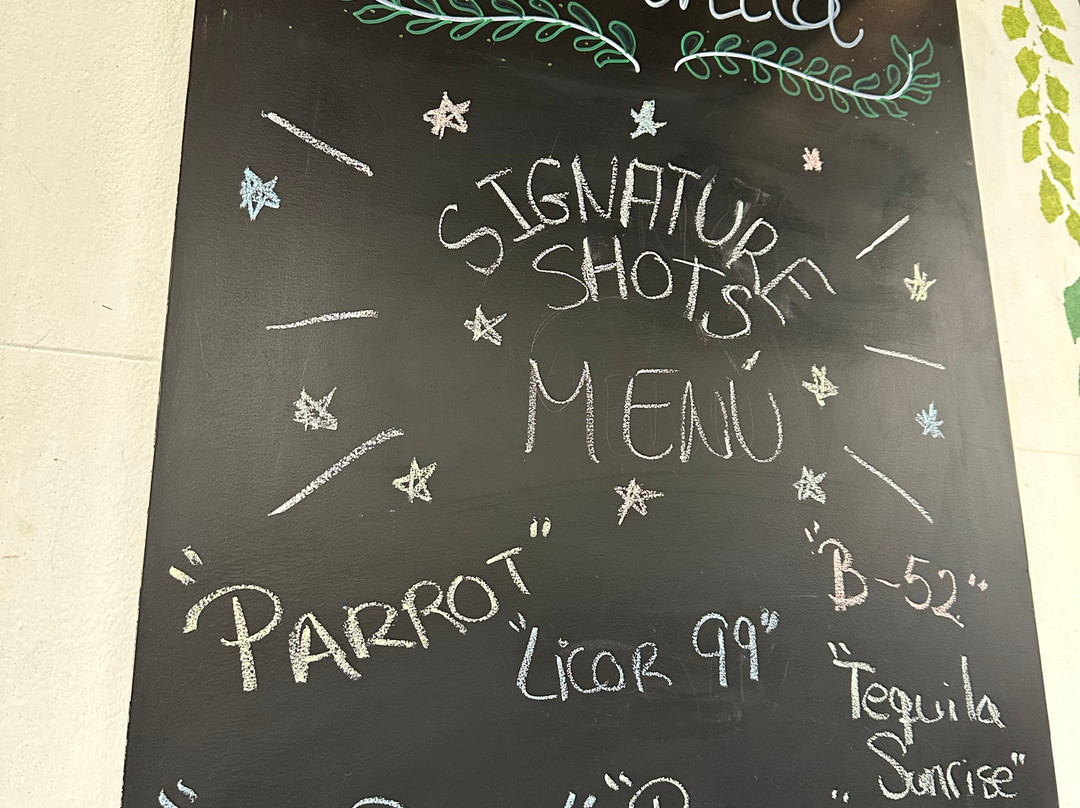 SIGNATURE
SHOTS
MENÚ
"PARROT"
"LicoR 99"
"B-52"
"Tequila
Sunrise"